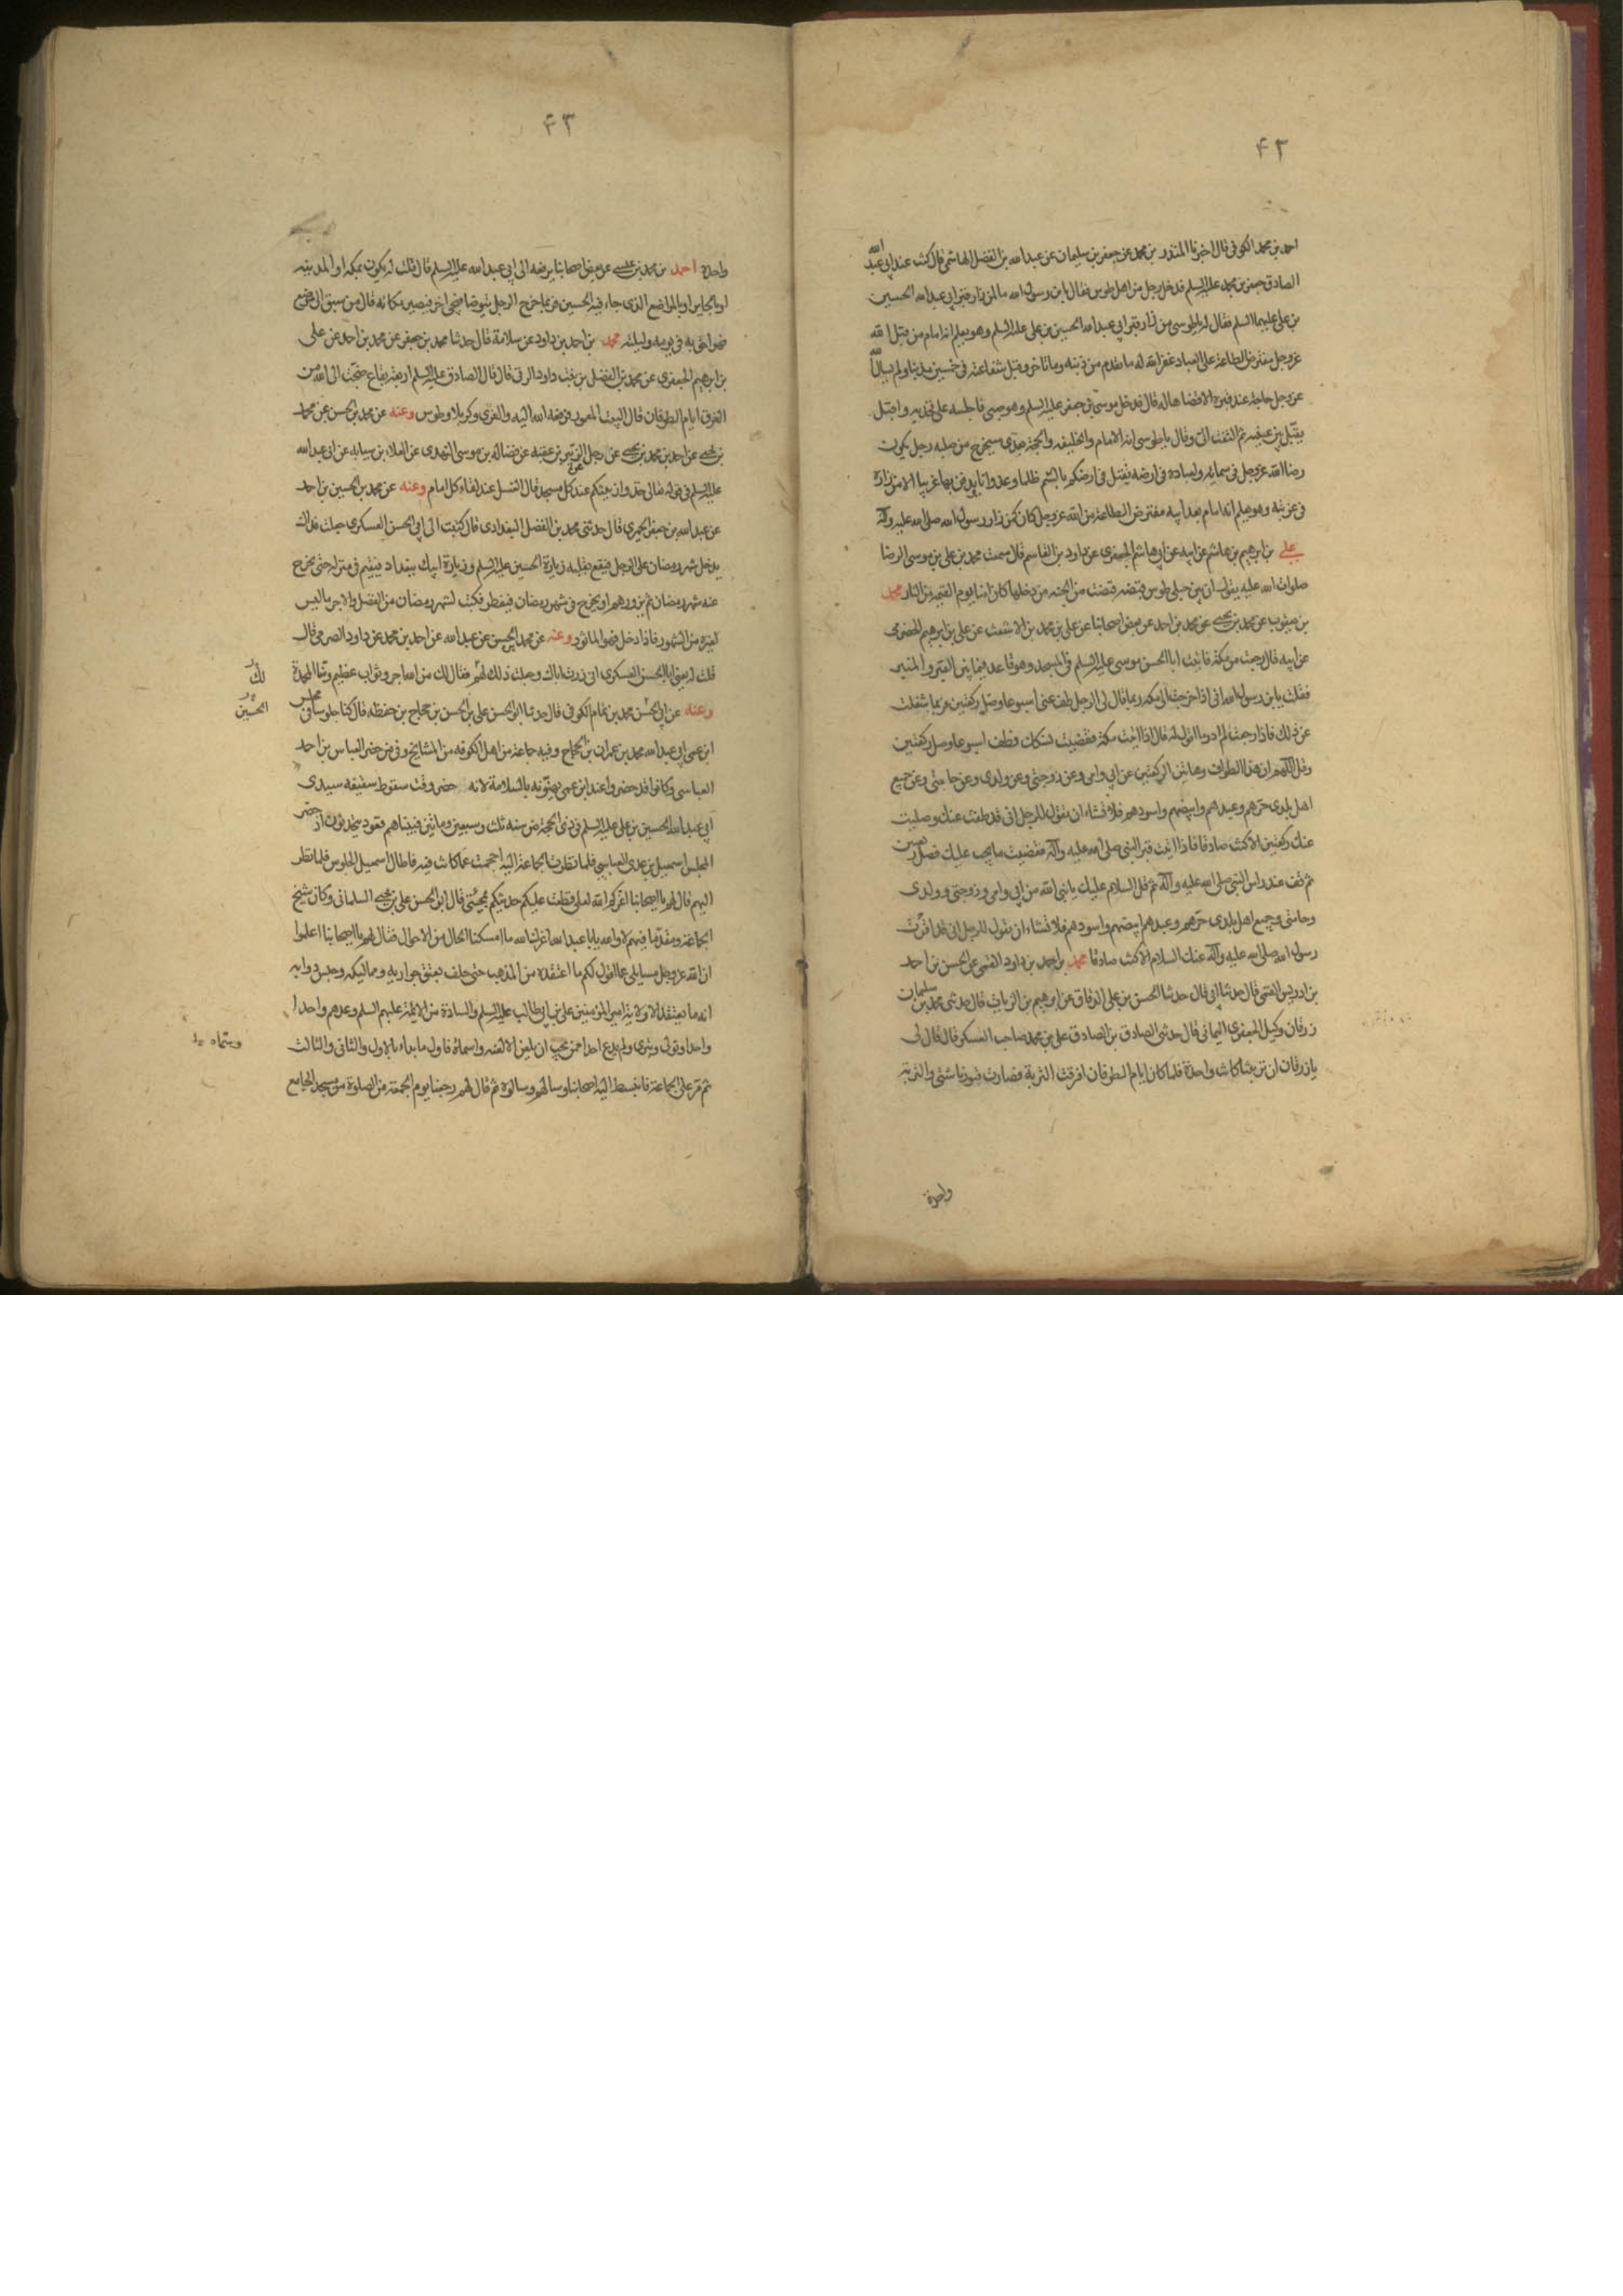 ۴۲
احمد بن محمد الكوفى قال اخبرنا المنذر بن محمد عن جعفر بن سليمان عن عبد الله بن الفضل الهاشمى قال كنت عند ابى عبد الله
الصادق جعفر بن محمد عليه السلم فدخل رجل من اهل طوس فقال يا بن رسول الله ما لمن زار قبر ابى عبد الله الحسين
بن على عليهما السلم فقال له يا طوسى من زار قبر ابى عبد الله الحسين بن على عليه السلم وهو يعلم انه امام من قبل الله
عز وجل مفترض الطاعة على العباد غفر الله له ما تقدم من ذنبه وما تاخر وقبل شفاعته فى خمسين مذنبا ولم يسال الله
عز وجل حاجة عند قبره الا قضاها له قال فدخل موسى بن جعفر عليه السلم وهو صبى فاجلسه على فخذيه واقبل
يقبل بين عينيه ثم التفت الىّ وقال يا طوسى انه الامام والخليفة والحجة بعدى سيخرج من صلبه رجل يكون
رضا الله عز وجل فى سمائه ولعباده فى ارضه يقتل فى ارضكم بالسّم ظلما وعدوانا يدفن بها غريبا الا من زاره
فى غربته وهو يعلم انه امام بعد ابيه مفترض الطاعة من الله عز وجل كان كمن زار رسول الله صلى الله عليه وآله
على بن ابرهيم بن هاشم عن ابيه عن ابى هاشم الجعفرى عن داود بن القاسم قال سمعت محمد بن على بن موسى الرضا
صلوات الله عليه يقول ان بين جبلى طوس قبضة قبضت من الجنة من دخلها كان امنا يوم القيمة من النار محمد
بن يعقوب عن محمد بن يحيى عن محمد بن احمد عن بعض اصحابنا عن على بن محمد بن الاشعث عن على بن ابرهيم الحضرمى
عن ابيه قال رجعت من مكة فاتيت ابا الحسن موسى عليه السلم فى المسجد وهو قاعد فيما بين القبر والمنبر
فقلت يا بن رسول الله انى اذا خرجت الى مكة ربما قال لى الرجل طف عنى اسبوعا وصل ركعتين فربما شغلت
عن ذلك فاذا رجعت لم ادر ما اقول له قال اذا اتيت مكة فقضيت نسكك فطف اسبوعا وصل ركعتين
وقل اللهم ان هذا الطواف وهاتين الركعتين عن ابى وامى وعن زوجتى وعن ولدى وعن حامتى وعن جميع
اهل بلدى حرهم وعبدهم وابيضهم واسودهم فلا تشاء ان تقول للرجل انى قد طفت عنك وصليت
عنك ركعتين الا كنت صادقا فاذا اتيت قبر النبى صلى الله عليه وآله فقضيت ما يجب عليك فصل ركعتين
ثم قف عند راس النبى صلى الله عليه وآله ثم قل السلام عليك يا نبى الله من ابى وامى وزوجتى وولدى
وحامتى وجميع اهل بلدى حرهم وعبدهم ابيضهم واسودهم فلا تشاء ان تقول للرجل انى قد اقرئت
رسول الله صلى الله عليه وآله عنك السلام الا كنت صادقا محمد بن احمد بن داود القمى عن الحسن بن احمد
بن ادريس القمى قال حدثنا ابى قال حدثنا الحسن بن على الدقاق عن ابرهيم بن الزيات قال حدثنى محمد بن سليمان
زرقان وكيل الجعفرى اليمانى قال حدثنى الصادق بن الصادق على بن محمد صاحب العسكر قال قال لى
يا زرقان ان تربتنا كانت واحدة فلما كان ايام الطوفان افترقت التربة فصارت قبورنا شتى والتربة
واحدة
۴۳
واحدة احمد بن محمد بن عيسى عن بعض اصحابنا يرفعه الى ابى عبد الله عليه السلم قال قلت له نكون بمكة او بالمدينة
او بالحاير او بالمواضع الذى جاء فيه الحسين فربما خرج الرجل يتوضا فيجئ اخر فيصير مكانه قال من سبق الى موضع
فهو احق به فى يومه وليلته محمد بن احمد بن داود عن سلامة قال حدثنا محمد بن جعفر عن محمد بن احمد عن على
بن ابرهيم الجعفرى عن محمد بن الفضل بن بنت داود الرقى قال قال الصادق عليه السلم اربعة بقاع ضجّت الى الله من
الغرق ايام الطوفان قال البيت المعمور فرفعه الله اليه والغرى وكربلا وطوس وعنه عن محمد بن الحسن عن محمد
بن يحيى عن احمد بن محمد بن يحيى عن رجل عن الزبير بن عقبة عن فضالة بن موسى النهدى عن العلاء بن سيابة عن ابى عبد الله
عليه السلم فى قوله تعالى خذوا زينتكم عند كل مسجد قال الغسل عند لقاء كل امام وعنه عن محمد بن الحسين بن احمد
عن عبد الله بن جعفر الحميرى قال حدثنى محمد بن الفضل البغدادى قال كتبت الى ابى الحسن العسكرى جعلت فداك
يدخل شهر رمضان على الرجل فيقع بقلبه زيارة الحسين عليه السلم وزيارة ابيك ببغداد فيقيم فى منزله حتى يخرج
عنه شهر رمضان ثم يزورهم او يخرج فى شهر رمضان فيفطر فكتب لشهر رمضان من الفضل والاجر ما ليس
لغيره من الشهور فاذا دخل فهو الماثور وعنه عن محمد بن الحسن عن عبد الله عن احمد بن محمد عن داود الصرمى قال
قلت له يعنى ابا الحسن العسكرى انى زرت اباك وجعلت ذلك لكم فقال لك من الله اجر وثواب عظيم ومنا المحمدة
لك
وعنه عن ابى الحسن محمد بن تمام الكوفى قال حدثنا ابو الحسن على بن الحسن بن حجاج من حفظه قال كنا جلوسا فى مجلس
الحسين
ابن عمى ابى عبد الله محمد بن عمران بن الحجاج وفيه جماعة من اهل الكوفة من المشايخ وفى من حضر العباس بن احمد
العباسى وكانوا قد حضروا عند ابن عمى يهنّونه بالسلامة لانه حضر وقت سقوط سقيفه سيدى
ابى عبد الله الحسين بن على عليه السلم فى ذى الحجة من سنه ثلث وسبعين وماتين فبينا هم قعود يتحدثون اذ حضر
المجلس اسمعيل بن عيسى العباسى فلما نظرت الجماعة اليه احجمت عما كانت فيه فاطال اسمعيل الجلوس فلما نظر
اليهم قال لهم يا اصحابنا اعزكم الله لعلى قطعت عليكم حديثكم بمجيئى قال ابو الحسن على بن يحيى السلمانى وكان شيخ
الجماعة ومقدّما فيهم لا والله يا با عبد الله اعزك الله ما امسكنا لحال من الاحوال فقال لهم يا اصحابنا اعلموا
ان الله عز وجل مسايلى عما اقول لكم ما اعتقده من المذهب حتى حلف بعتق جواريه ومماليكه وحبس دوابه
انه ما يعتقد الا ولاية امير المؤمنين على بن ابى طالب عليه السلم والسادة من الايمة عليهم السلم وعدهم واحدا
واحدا
ثم مر على الجماعة فانبسط اليه اصحابنا وسالهم وسالوه ثم قال لهم رجعنا يوم الجمعة من الصلوة من مسجد الجامع